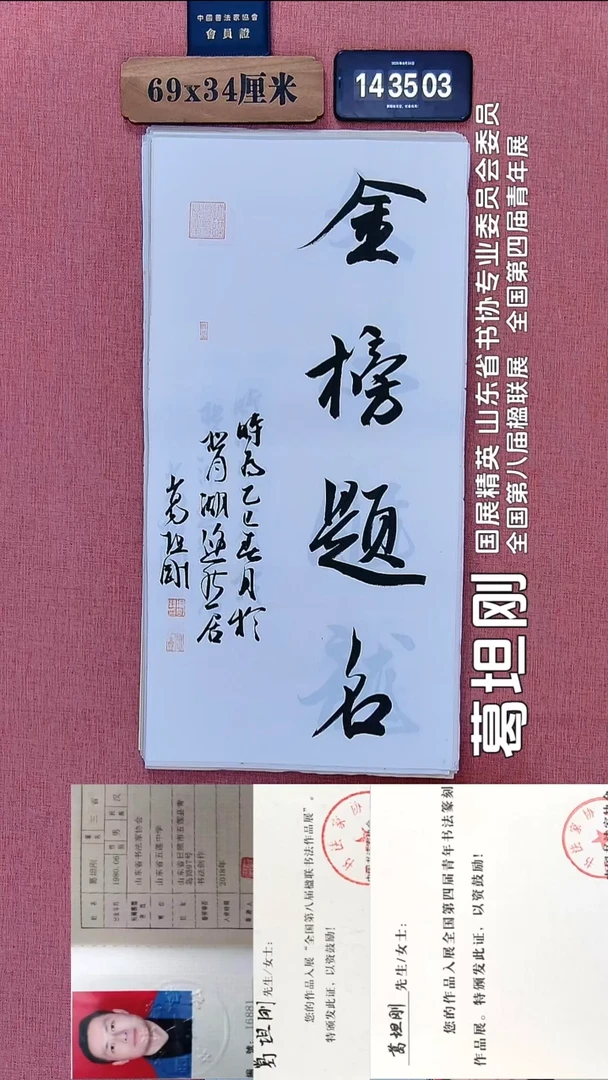 中國書法家協會
會員證
69x34厘米
14 35 03
金榜題名
時爲乙巳春月於
居
葛坦剛
国展精英 山东省书协专业委员会委员
全国第八届楹联展 全国第四届青年展
葛坦刚
葛坦刚
山东省书法家协会
山东省五莲中学
书法创作
2018年
16881
葛坦刚 先生/女士:
您的作品入展“全国第八届楹联书法作品展”。
特颁发此证，以资鼓励!
葛坦刚 先生/女士:
您的作品入展全国第四届青年书法篆刻
作品展。特颁发此证，以资鼓励!